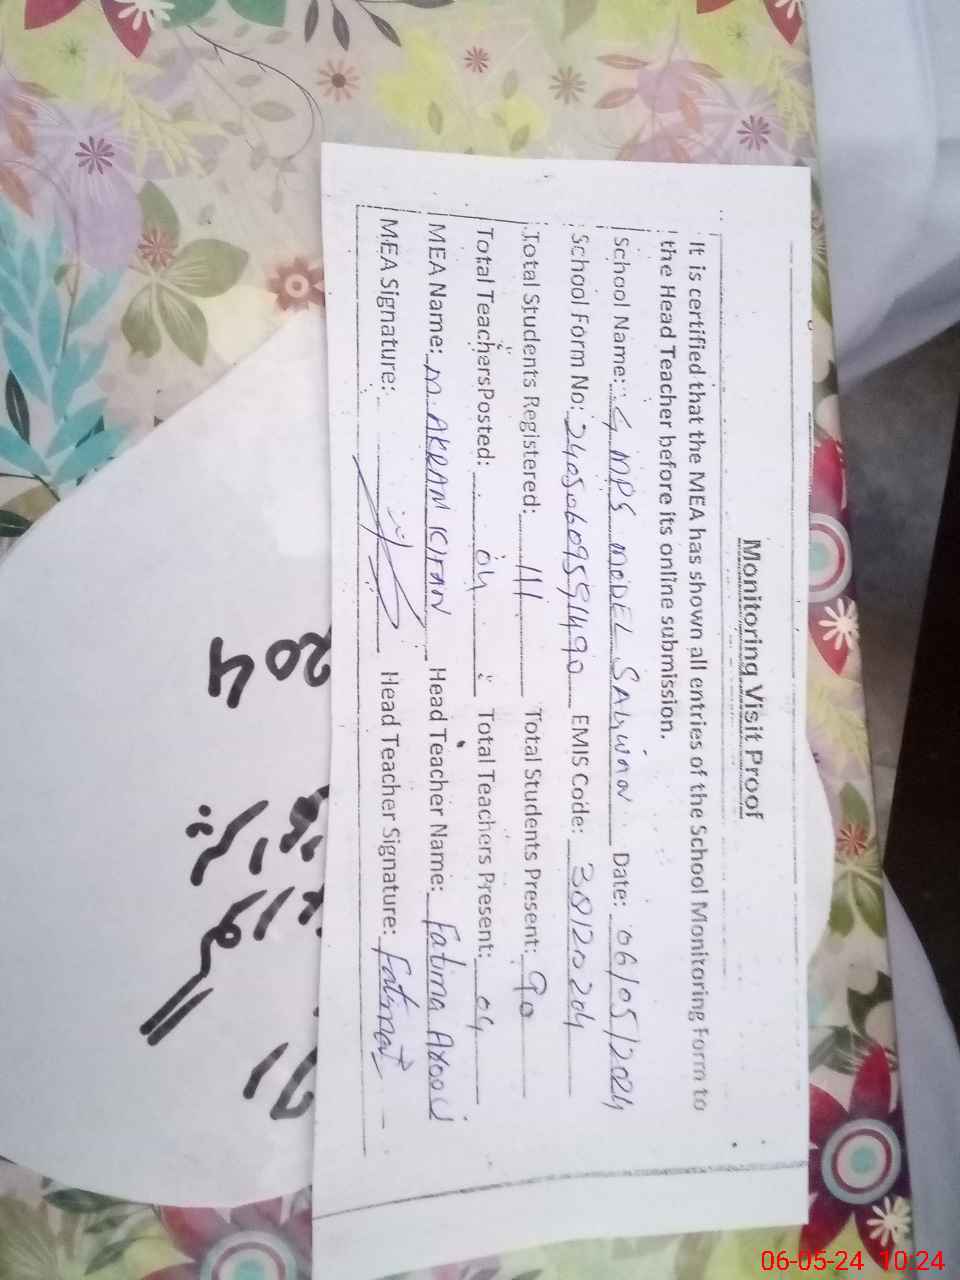 Monitoring Visit Proof
It is certified that the MEA has shown all entries of the School Monitoring Form to
the Head Teacher before its online submission.
School Name: G MPS MODEL SALWAN Date: 06/05/2024
School Form No: 2405060959490 EMIS Code: 38120204
Total Students Registered: 111 Total Students Present: 90
Total Teachers Posted: 04 Total Teachers Present: 04
MEA Name: M. AKRAM KHAN Head Teacher Name: Fatima
MEA Signature: Head Teacher Signature: Fatima
204
06-05-24 10:24